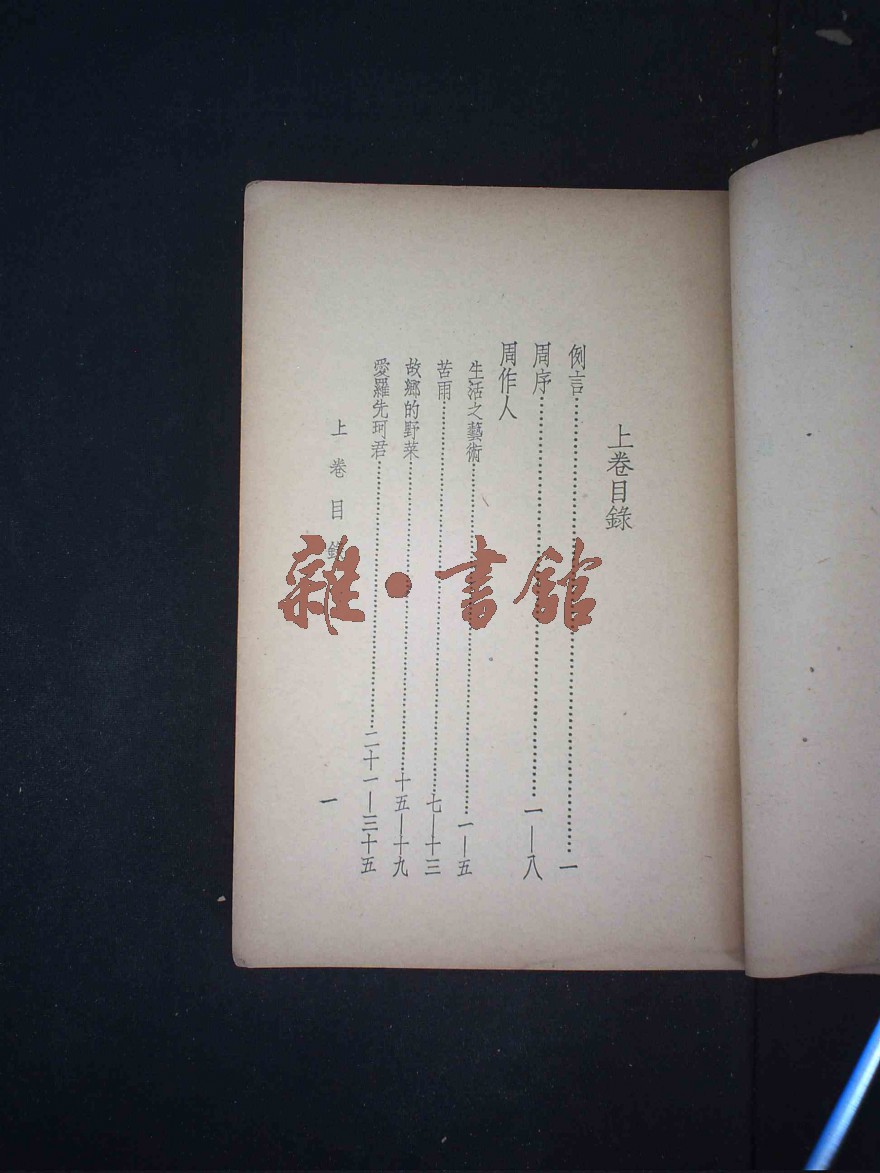 上卷目錄
例言⋯⋯⋯⋯⋯⋯⋯⋯⋯⋯⋯⋯一
周序⋯⋯⋯⋯⋯⋯⋯⋯⋯⋯⋯⋯一—八
周作人
生活之藝術⋯⋯⋯⋯⋯⋯⋯⋯⋯⋯一—五
苦雨⋯⋯⋯⋯⋯⋯⋯⋯⋯⋯⋯⋯七—十三
故鄉的野菜⋯⋯⋯⋯⋯⋯⋯⋯⋯⋯十五—十九
愛羅先珂君⋯⋯⋯⋯⋯⋯⋯⋯⋯⋯二十一—三十五
上卷目錄
一
雜·書館